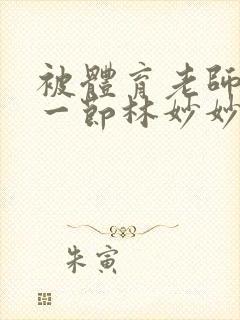 被體育老師
一節林妙妙
朱寅